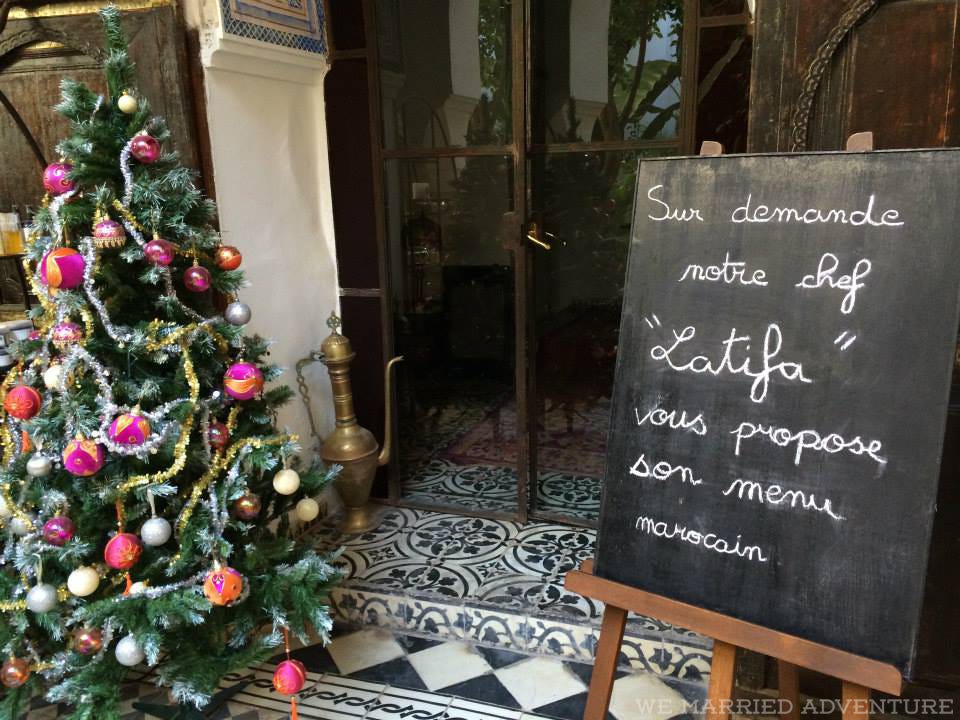 Sur demande
notre chef
"Latifa"
vous propose
son menu
marocain
WE MARRIED ADVENTURE